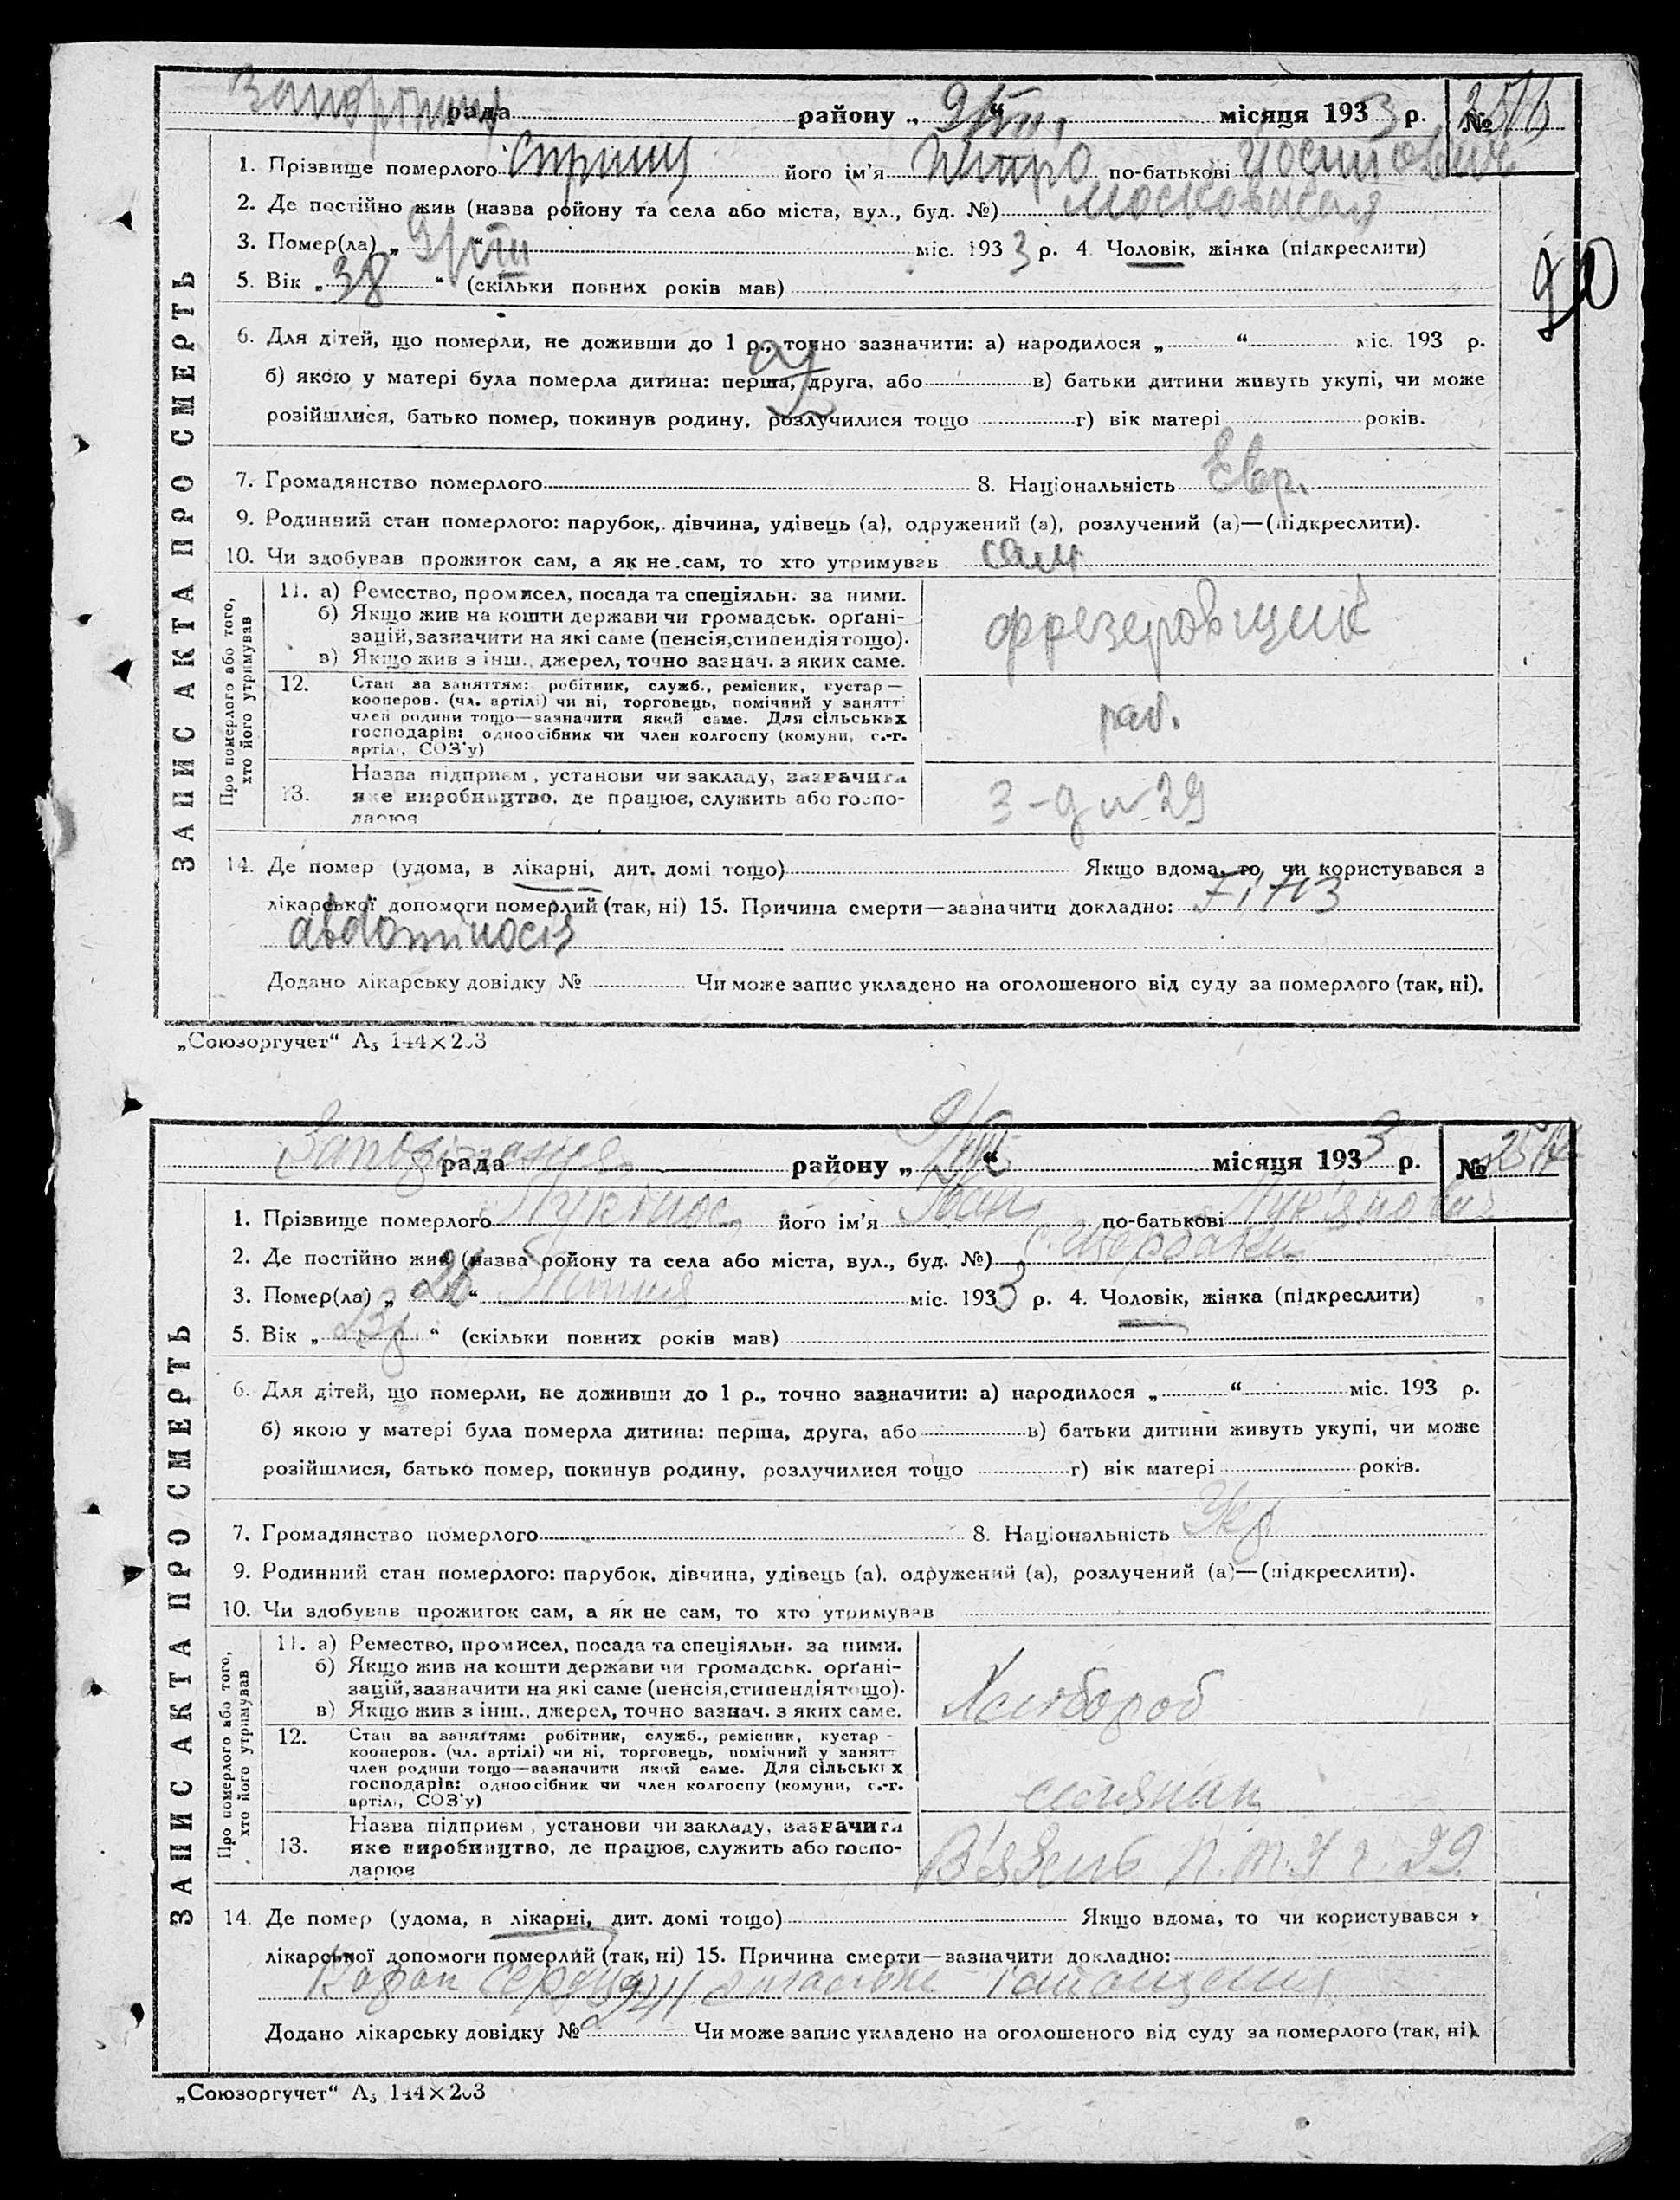 рада району „ 9/VIII “ місяця 1933 р. № 2516
ЗАПИС АКТА ПРО СМЕРТЬ
1. Прізвище померлого його ім'я Питро по-батькові
2. Де постійно жив (назва ройону та села або міста, вул., буд. №) Московская
3. Помер(ла) „ 9/VIII “ міс. 1933 р. 4. Чоловік, жінка (підкреслити)
5. Вік „ 38 “ (скільки повних років мав)
90
6. Для дітей, що померли, не доживши до 1 р., точно зазначити: а) народилося „ “ міс. 193 р.
б) якою у матері була померла дитина: перша, друга, або в) батьки дитини живуть укупі, чи може
розійшлися, батько помер, покинув родину, розлучилися тощо г) вік матері років.
7. Громадянство померлого 8. Національність Евр.
9. Родинний стан померлого: парубок, дівчина, удівець (а), одружений (а), розлучений (а)—(підкреслити).
10. Чи здобував прожиток сам, а як не сам, то хто утримував сам
Про померлого або того, хто його утримував
11. а) Ремество, промисел, посада та спеціяльн. за ними.
б) Якщо жив на кошти держави чи громадськ. орґані-
зацій, зазначити на які саме (пенсія, стипендія тощо).
в) Якщо жив з інш. джерел, точно зазнач. з яких саме.
фрезеровщик
12. Стан за заняттям: робітник, служб., ремісник, кустар—
кооперов. (чл. артілі) чи ні, торговець, помічний у занятт
член родини тощо—зазначити який саме. Для сільських
господарів: одноосібник чи член колгоспу (комуни, с.-г.
артілі, СОЗ'у)
раб.
13. Назва підприєм., установи чи закладу, зазначити
яке виробництво, де працює, служить або госпо-
дарює
З-д № 29
14. Де помер (удома, в лікарні, дит. домі тощо) Якщо вдома, то, чи користувався з
лікарської допомоги померлий (так, ні) 15. Причина смерти—зазначити докладно:
Додано лікарську довідку № Чи може запис укладено на оголошеного від суду за померлого (так, ні).
„Союзоргучет“ А5 144×203
рада району „ “ місяця 1933 р. №
ЗАПИС АКТА ПРО СМЕРТЬ
1. Прізвище померлого його ім'я Іван по-батькові Лук'янович
2. Де постійно жив (назва ройону та села або міста, вул., буд. №) с. Щербаки
3. Помер(ла) „ 26 “ Липня міс. 1933 р. 4. Чоловік, жінка (підкреслити)
5. Вік „ 23 р “ (скільки повних років мав)
6. Для дітей, що померли, не доживши до 1 р., точно зазначити: а) народилося „ “ міс. 193 р.
б) якою у матері була померла дитина: перша, друга, або в) батьки дитини живуть укупі, чи може
розійшлися, батько помер, покинув родину, розлучилися тощо г) вік матері років.
7. Громадянство померлого 8. Національність Укр
9. Родинний стан померлого: парубок, дівчина, удівець (а), одружений (а), розлучений (а)—(підкреслити).
10. Чи здобував прожиток сам, а як не сам, то хто утримував
Про померлого або того, хто його утримував
11. а) Ремество, промисел, посада та спеціяльн. за ними.
б) Якщо жив на кошти держави чи громадськ. орґані-
зацій, зазначити на які саме (пенсія, стипендія тощо).
в) Якщо жив з інш., джерел, точно зазнач. з яких саме.
Хлібороб
12. Стан за заняттям: робітник, служб., ремісник, кустар-
кооперов. (чл. артілі) чи ні, торговець, помічний у занятт
член родини тощо—зазначити який саме. Для сільських
господарів: одноосібник чи член колгоспу (комуни, с.-г.
артілі, СОЗ'у)
селянин
13. Назва підприєм., установи чи закладу, зазначити
яке виробництво, де працює, служить або госпо-
дарює
В'язень
14. Де помер (удома, в лікарні, дит. домі тощо) Якщо вдома, то чи користувався
лікарської допомоги померлий (так, ні) 15. Причина смерти—зазначити докладно:
Додано лікарську довідку № Чи може запис укладено на оголошеного від суду за померлого (так, ні).
„Союзоргучет“ А5 144×203